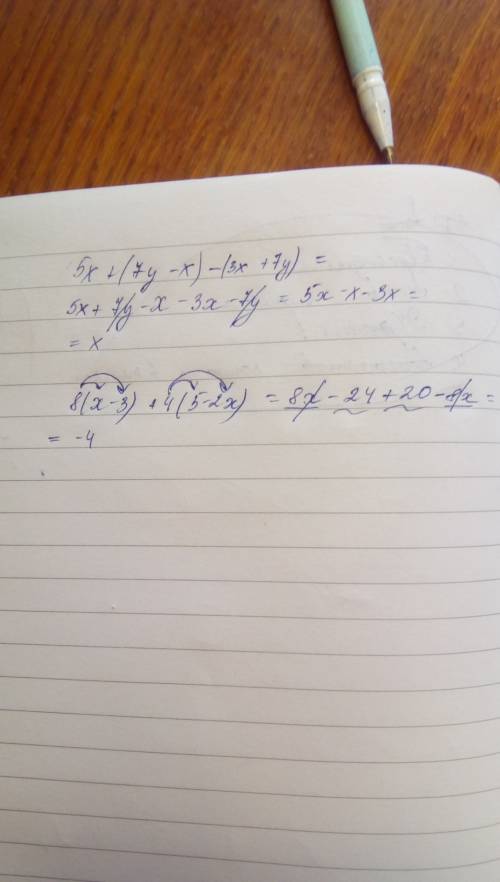 5x + (7y - x) - (3x + 7y) =
5x + 7y - x - 3x - 7y = 5x - x - 3x =
= x
8(x - 3) + 4(5 - 2x) = 8x - 24 + 20 - 8x =
= -4